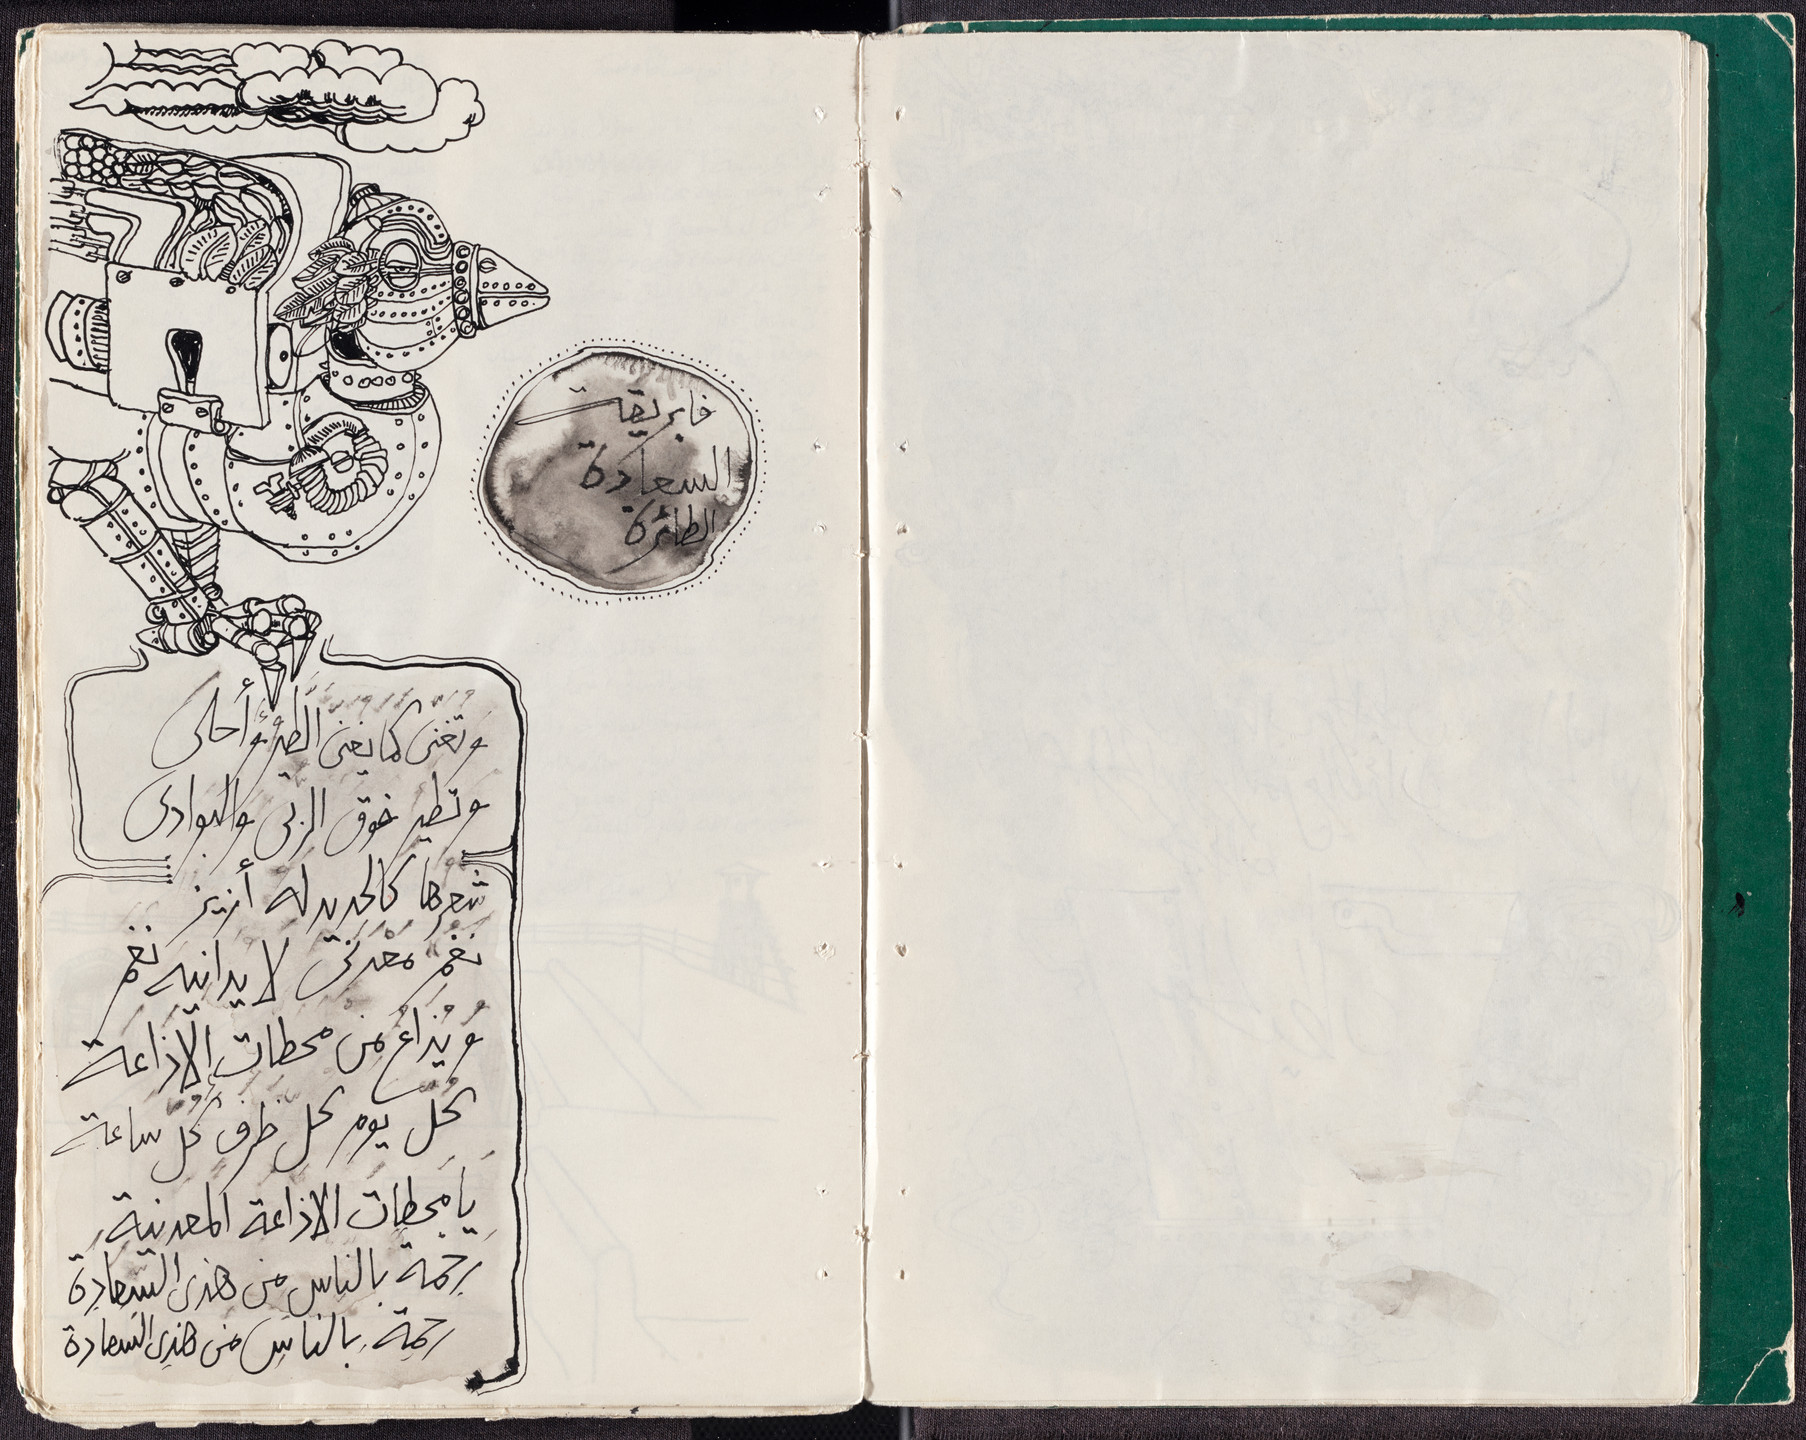 فابريقة
السعادة
الطائرة
وتغنى كما يغنى الطير وأحلى
وتطير فوق الربى والبوادى
شعرها كالحديد له أزيز
نغم معدنى لا يدانيه نغم
ويُذاع من محطات الإذاعة
كل يوم كل ظرف كل ساعة
يا محطات الاذاعة المعدنية
رحمة بالناس من هذى السعادة
رحمة بالناس من هذى السعادة